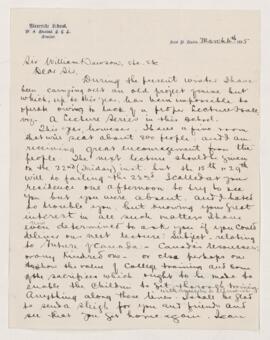 Riverside School,
March 6th
Sir William Dawson, etc. etc
Dear Sir,
During the present winter I have
been carrying out an old project of mine but
which, up to this year, has been impossible to
operate owing to lack of a proper lecture-hall,
viz. A Lecture Series in this School.
This year, however, I have a fine room
that will seat about 200 people, and am
receiving great encouragement from the
people. The next lecture should be given
on the 22nd (Friday) inst. but the 15th or 29th
will do failing the 22nd. I called at your
residence one afternoon to try to see
you but you were absent, and I
to trouble you but knowing your great
interest in all such matters I have
even determined to ask you if you could
deliver our next lecture: Subject, relating
to Future of Canada - Canada's Resources,
any kindred one - or else perhaps one
to show the value of College training and some
of the sacrifices which ought to be made to
enable the children to get thorough training
Anything along those lines. I shall be glad
to send a sleigh for you and friends and
see that you get home again. I can